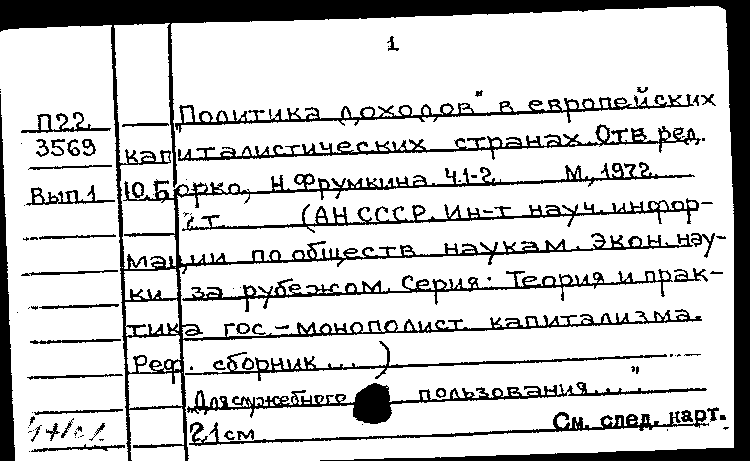 1
П22 „Политика доходов" в европейских
3569 капиталистических странах. Отв. ред.
Вып.1 Ю. Борко, Н. Фрумкина. Ч.1-2. М., 1972.
2 т. (АН СССР. Ин-т науч. инфор-
мации по обществ. наукам. Экон. нау-
ки за рубежом. Серия: Теория и прак-
тика гос.-монополист. капитализма.
Реф. сборник ... )
„Для служебного пользования..."
21 см См. след. карт.